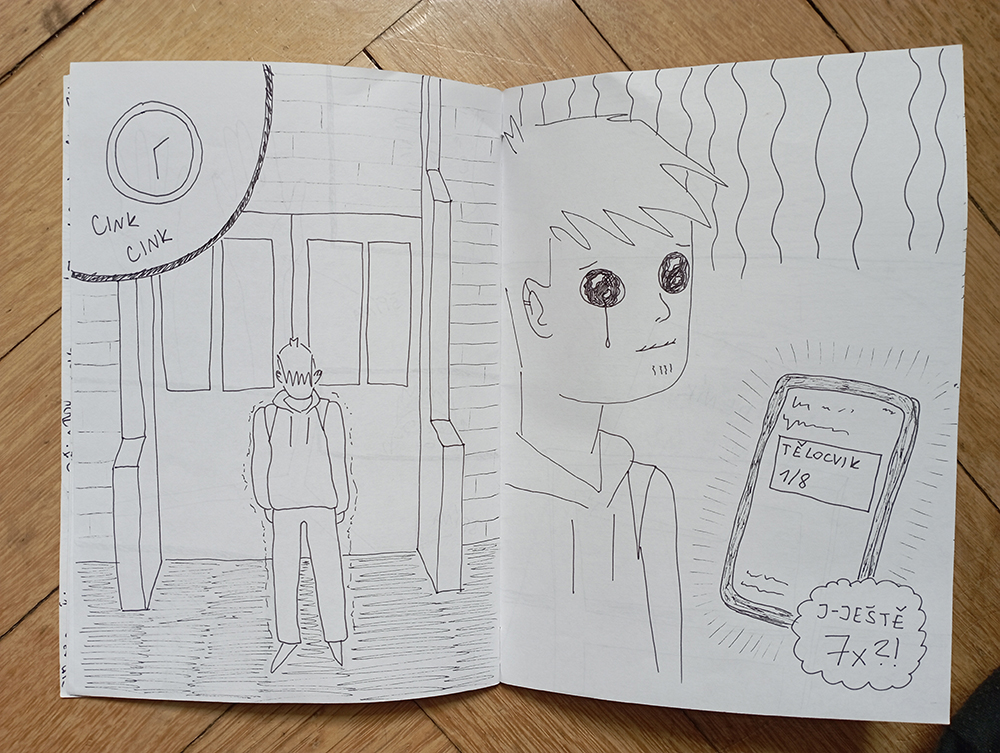 CINK
CINK
TĚLOCVIK
1/8
J-JEŠTĚ
7x?!